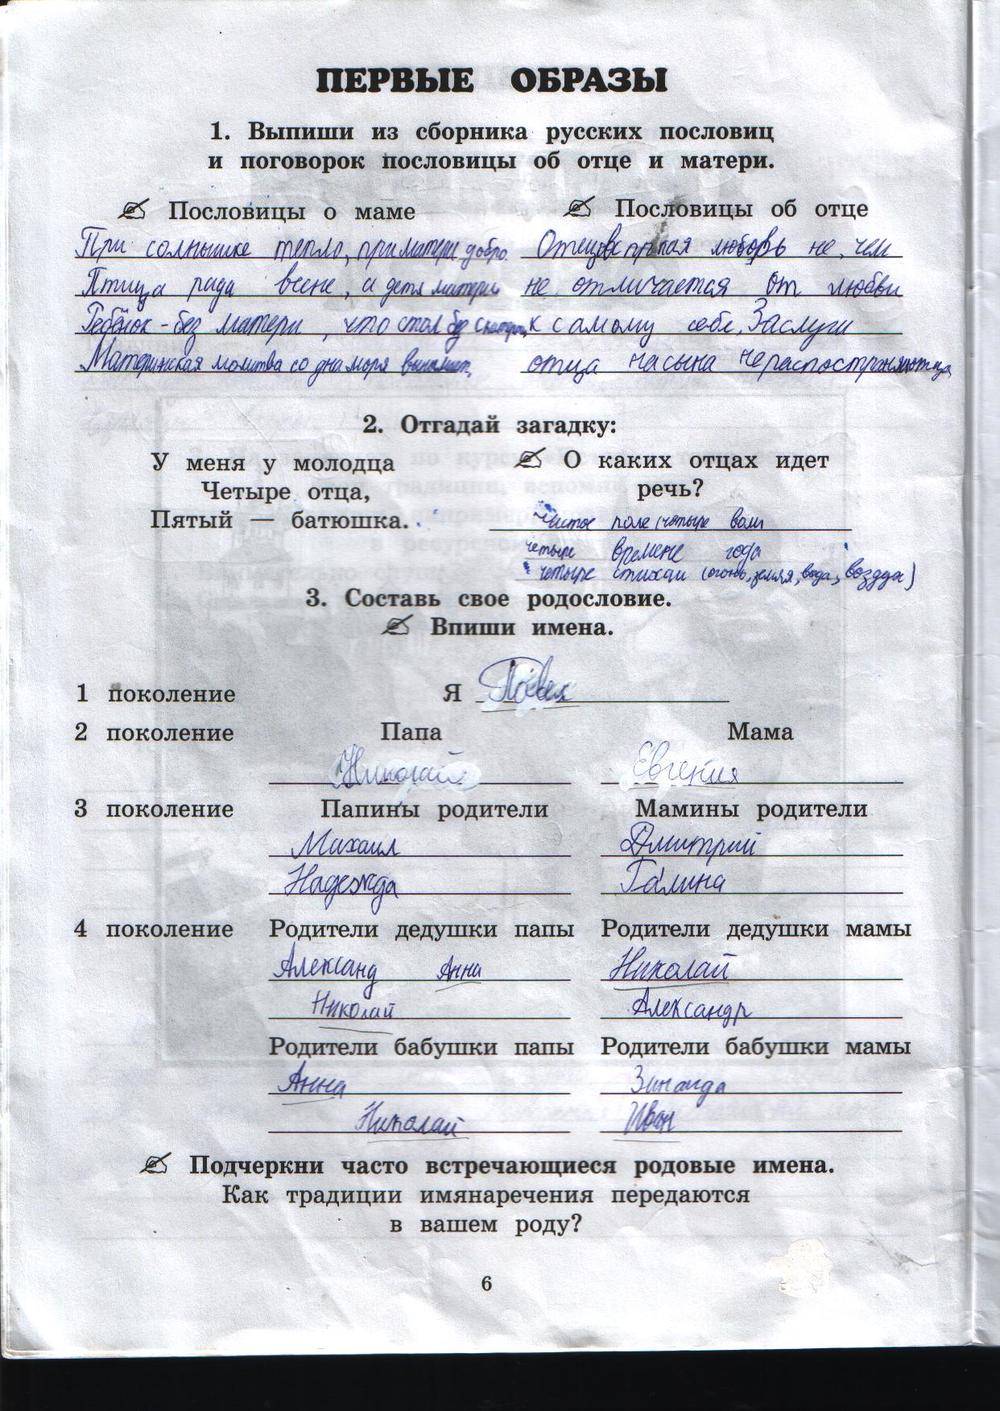 ПЕРВЫЕ ОБРАЗЫ
1. Выпиши из сборника русских пословиц
и поговорок пословицы об отце и матери.
Пословицы о маме
При солнышке тепло, при матери добро.
Птица рада весне, а дитя матери
Ребёнок - без матери, что стол без скатерти
Материнская молитва со дна моря вынимает.
Пословицы об отце
любовь не, чем
не отличается от любви
к самому себе. Заслуги
отца на сына не распостраняютца
2. Отгадай загадку:
У меня у молодца
Четыре отца,
Пятый — батюшка.
О каких отцах идет
речь?
Чистое поле (четыре воли
четыре времене года
четыре стихаи (огонь, земля, вода, воздуда)
3. Составь свое родословие.
Впиши имена.
1 поколение Я Павел
2 поколение Папа Мама
Николай Евгения
3 поколение Папины родители Мамины родители
Михаил Дмитрий
Надежда Галина
4 поколение Родители дедушки папы Родители дедушки мамы
Александ Анна Николай
Николай Александр
Родители бабушки папы Родители бабушки мамы
Анна Зинаида
Николай Иван
Подчеркни часто встречающиеся родовые имена.
Как традиции имянаречения передаются
в вашем роду?
6